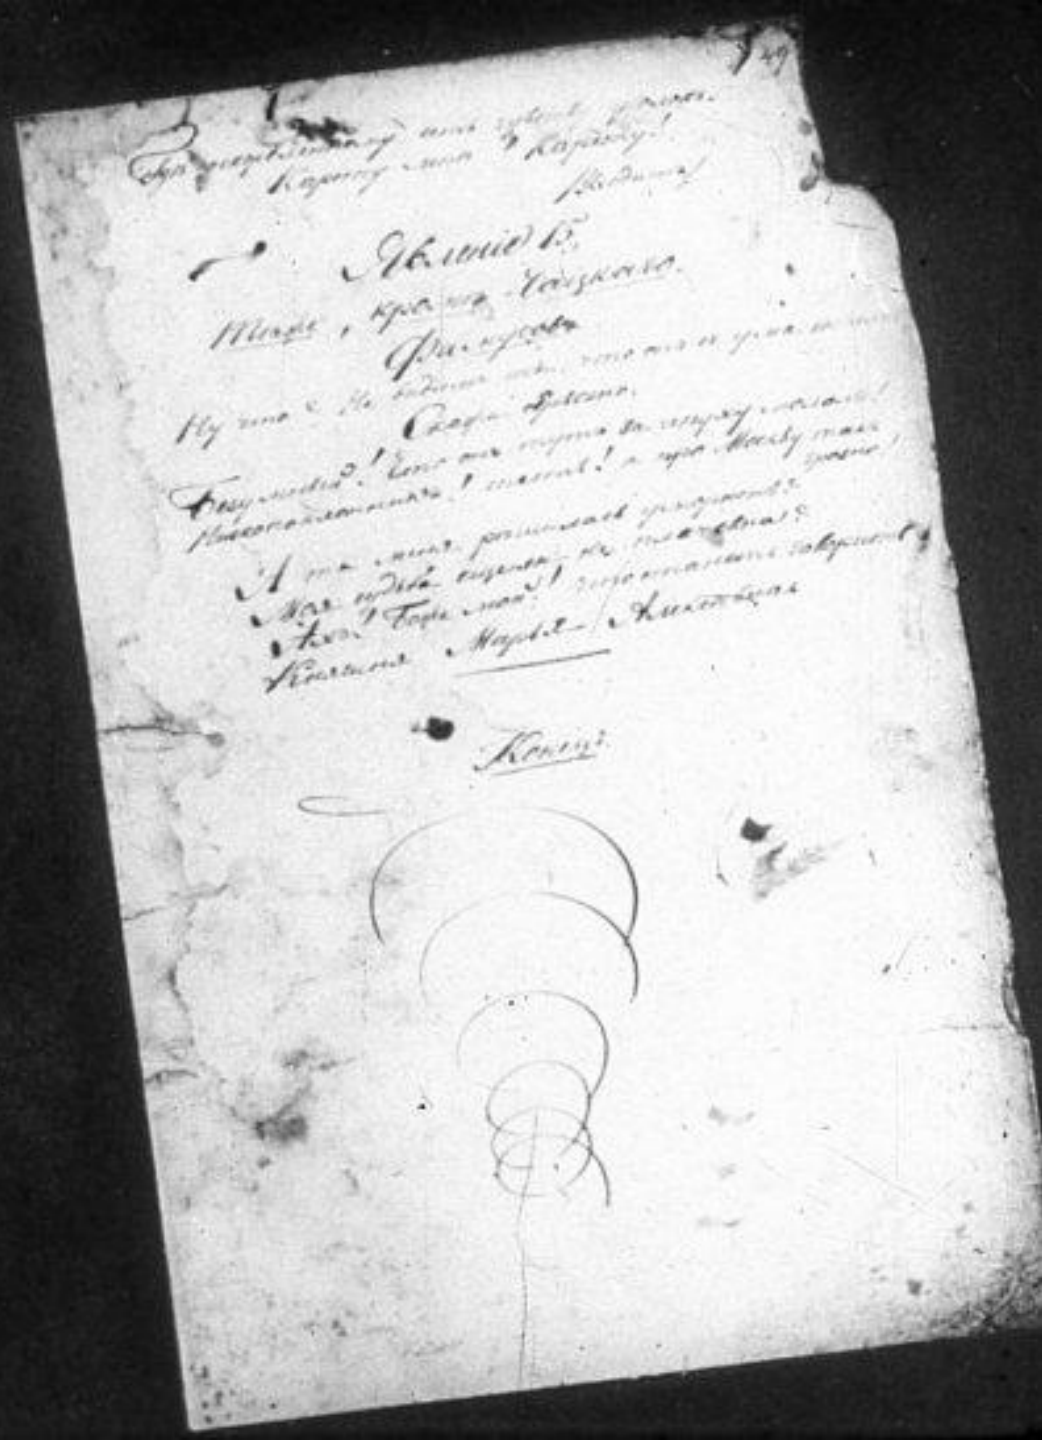 49
Где оскорбленному есть чувству уголокъ.
Карету мнѣ, Карету!
Явленіе 15.
Тѣже, кромѣ Чацкаго.
Фамусовъ
Ну что? Не видишь ты, что онъ съ ума
Скажи
Безумный! Что онъ тутъ за чепуху мололъ!
Низкопоклонникъ! тесть! и про Москву такъ
грозно!
А ты меня рѣшилась уморить?
Моя судьба еще ли не плачевна?
Ахъ! Боже мой! что станетъ говорить
Княгиня Марья Алексѣвна
Конецъ.